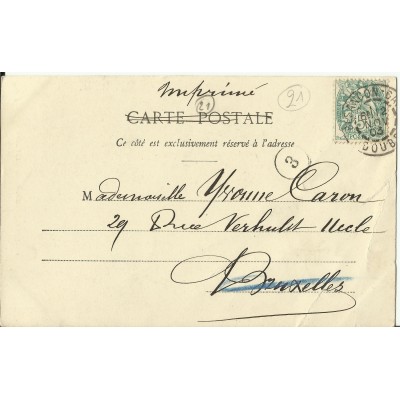 Imprimé
21
21
CARTE POSTALE
Ce côté est exclusivement réservé à l'adresse
3
Mademoiselle Yvonne Caron
29 Rue Verhulst Uccle
Bruxelles
DOUBS
03